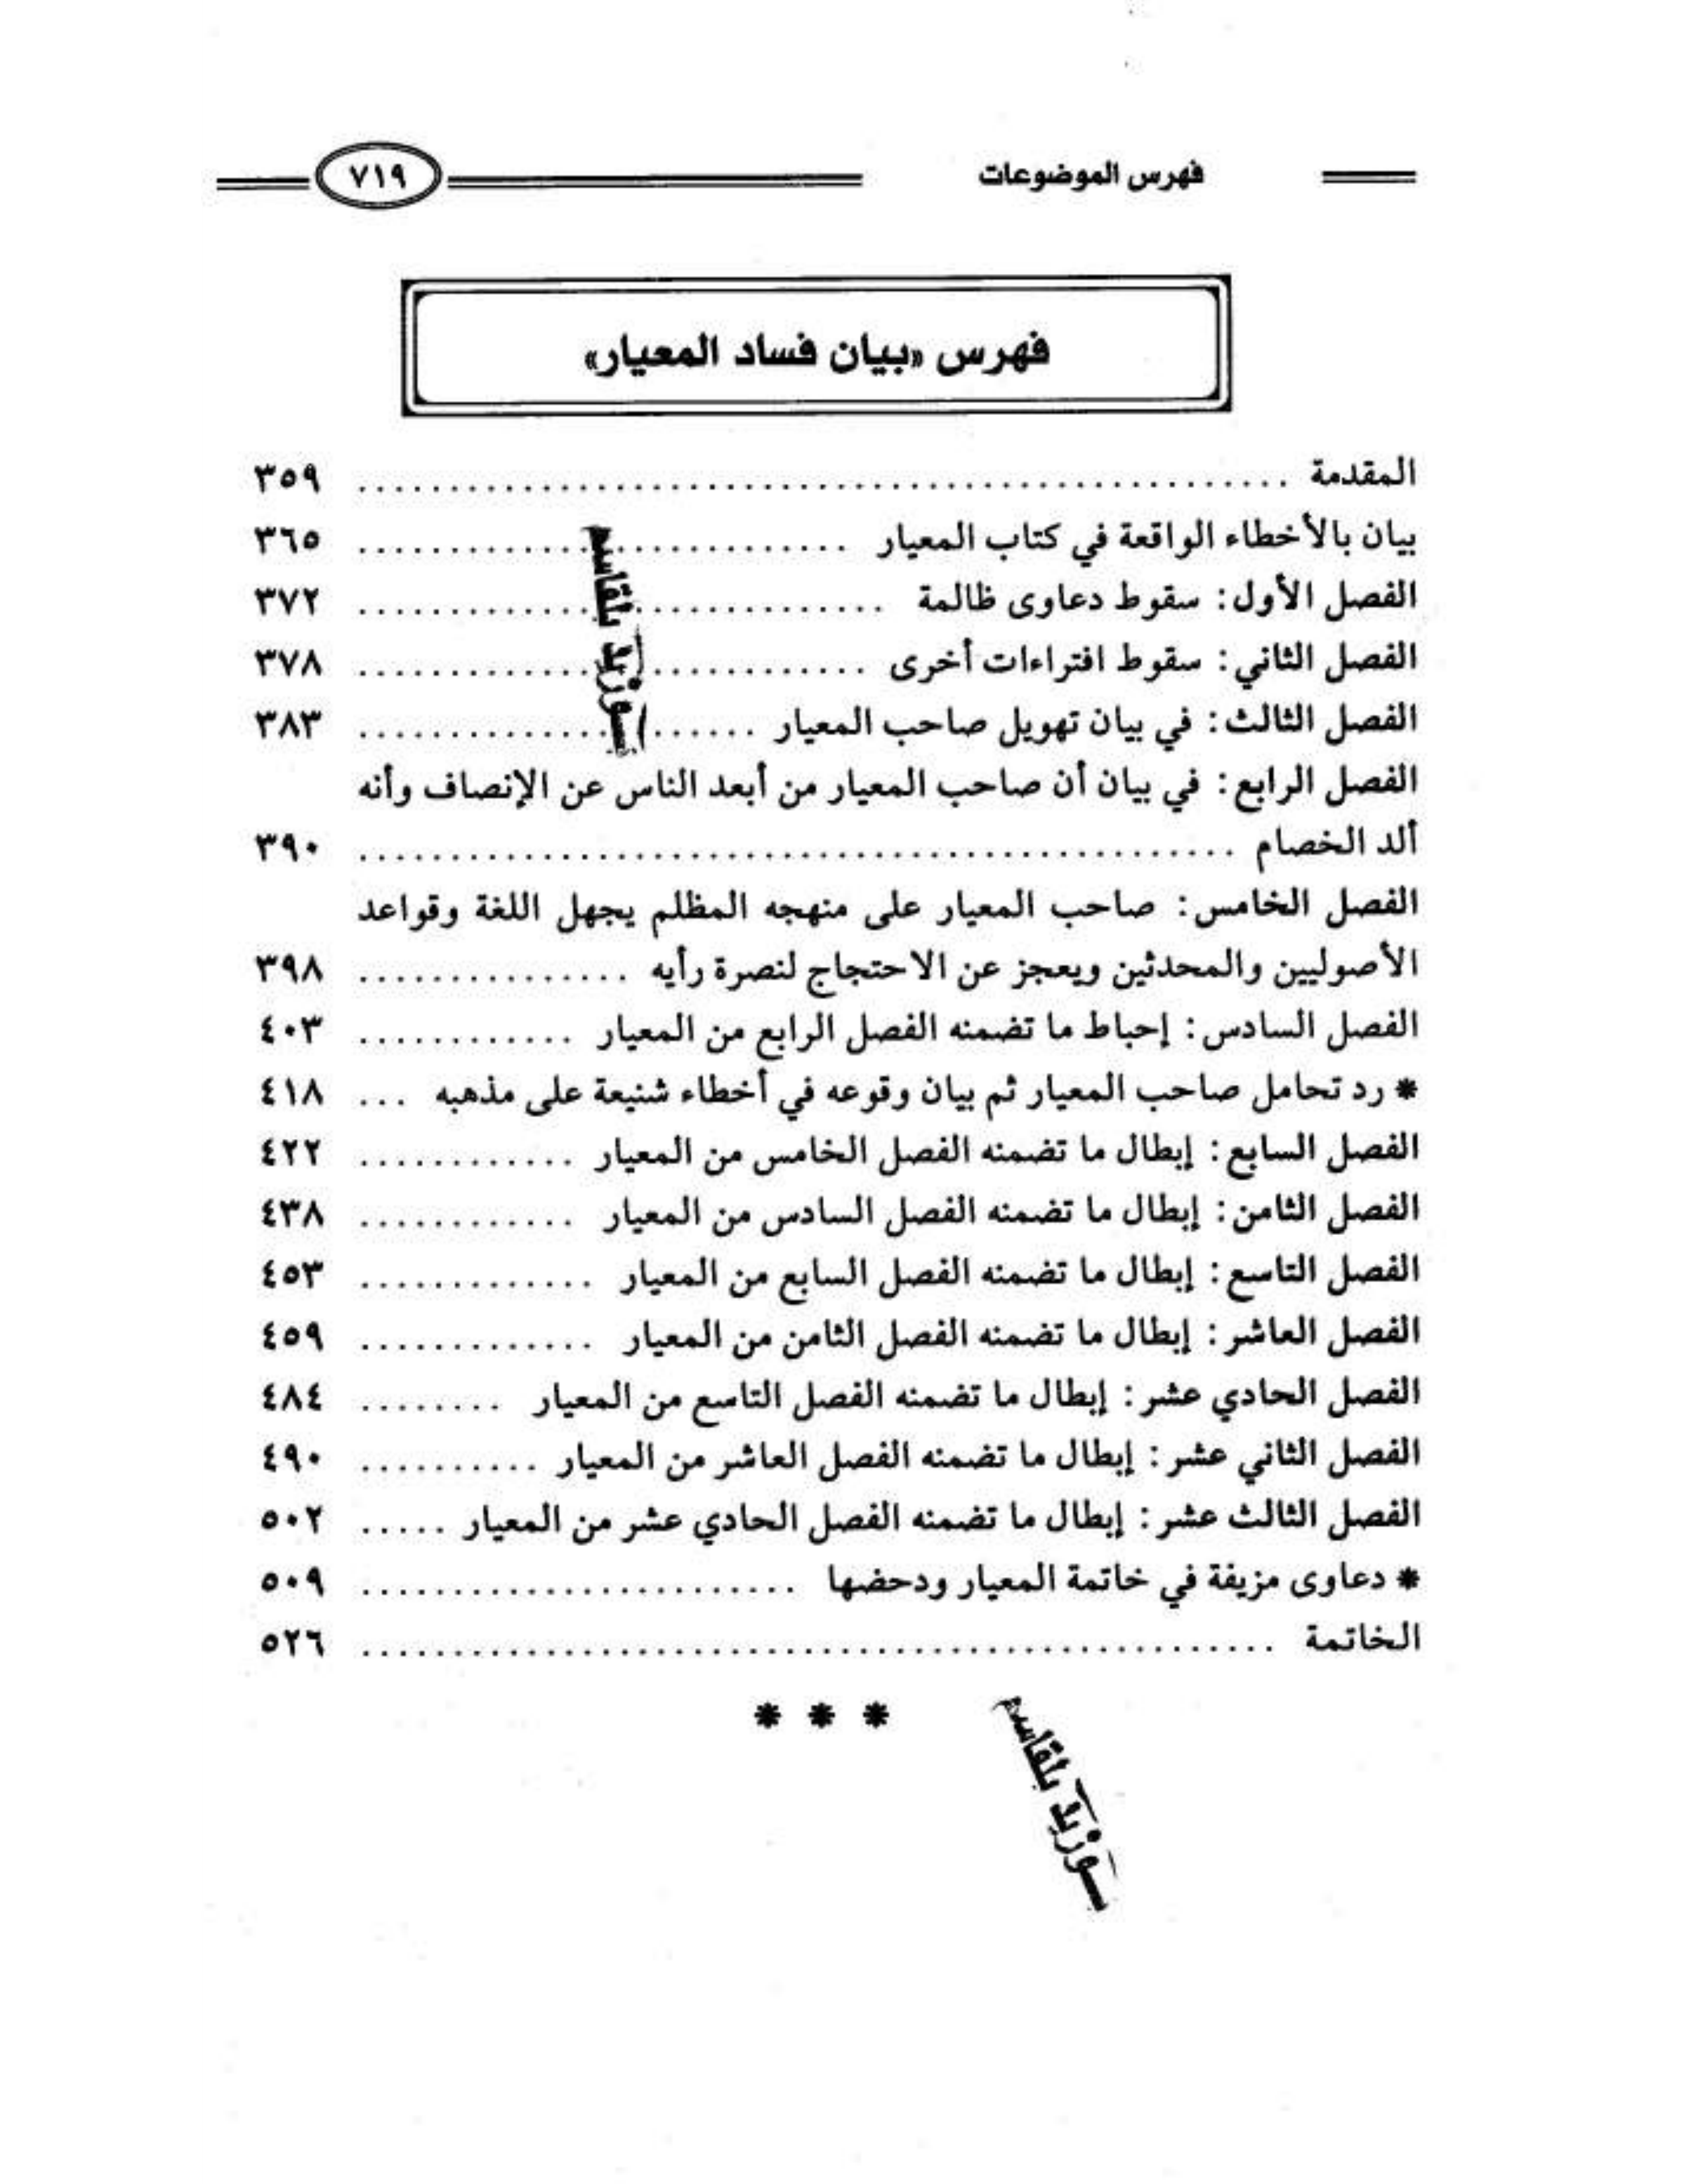 فهرس الموضوعات ٧١٩
فهرس «بيان فساد المعيار»
المقدمة ................................................... ٣٥٩
بيان بالأخطاء الواقعة في كتاب المعيار ........................... ٣٦٥
الفصل الأول: سقوط دعاوى ظالمة ............................. ٣٧٢
الفصل الثاني: سقوط افتراءات أخرى ............................ ٣٧٨
الفصل الثالث: في بيان تهويل صاحب المعيار ...................... ٣٨٣
الفصل الرابع: في بيان أن صاحب المعيار من أبعد الناس عن الإنصاف وأنه
ألد الخصام ................................................ ٣٩٠
الفصل الخامس: صاحب المعيار على منهجه المظلم يجهل اللغة وقواعد
الأصوليين والمحدثين ويعجز عن الاحتجاج لنصرة رأيه ............... ٣٩٨
الفصل السادس: إحباط ما تضمنه الفصل الرابع من المعيار ............ ٤٠٣
* رد تحامل صاحب المعيار ثم بيان وقوعه في أخطاء شنيعة على مذهبه ... ٤١٨
الفصل السابع: إبطال ما تضمنه الفصل الخامس من المعيار ............ ٤٢٢
الفصل الثامن: إبطال ما تضمنه الفصل السادس من المعيار ............ ٤٣٨
الفصل التاسع: إبطال ما تضمنه الفصل السابع من المعيار ............. ٤٥٣
الفصل العاشر: إبطال ما تضمنه الفصل الثامن من المعيار ............. ٤٥٩
الفصل الحادي عشر: إبطال ما تضمنه الفصل التاسع من المعيار ........ ٤٨٤
الفصل الثاني عشر: إبطال ما تضمنه الفصل العاشر من المعيار .......... ٤٩٠
الفصل الثالث عشر: إبطال ما تضمنه الفصل الحادي عشر من المعيار ..... ٥٠٢
* دعاوى مزيفة في خاتمة المعيار ودحضها ........................ ٥٠٩
الخاتمة .................................................. ٥٢٦
* * *
بلقاسم